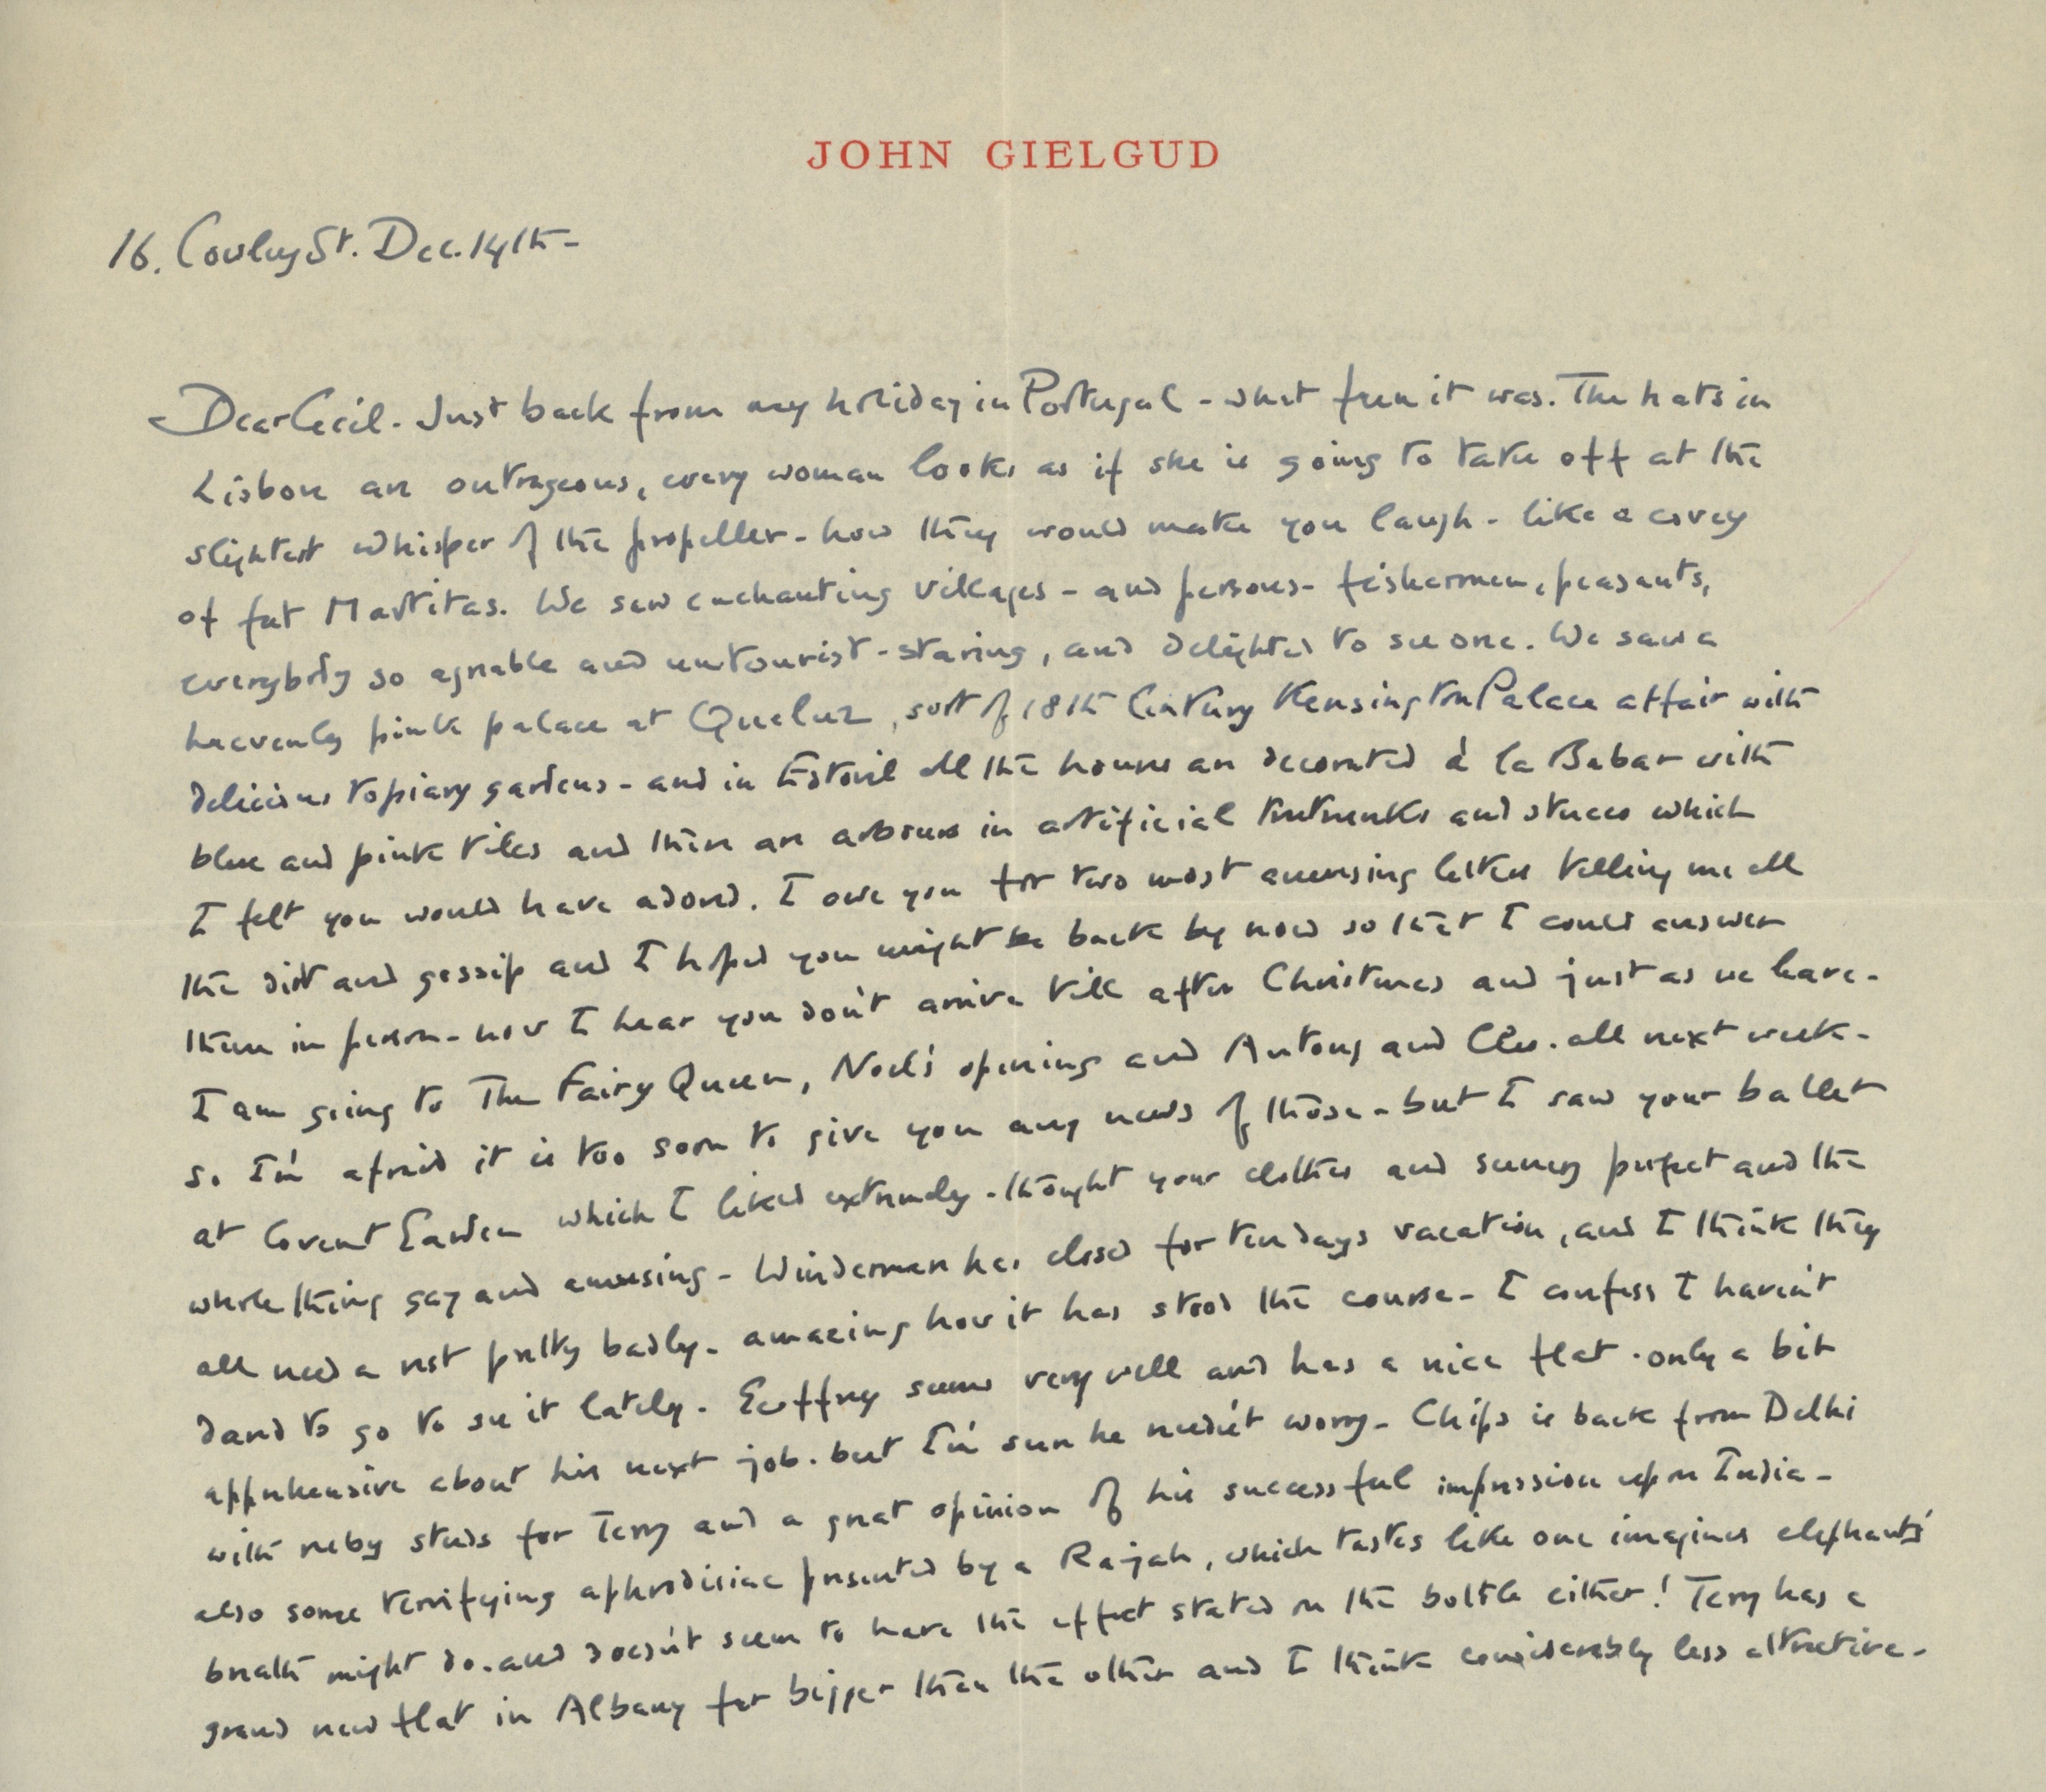 JOHN GIELGUD
16. Cowley St. Dec. 14th -
Dear Cecil. Just back from my holiday in Portugal - what fun it was. The hats in
Lisbon are outrageous, every woman looks as if she is going to take off at the
slightest whisper of the propeller - how they would make you laugh - like a covey
of fat Martitas. We saw enchanting villages - and persons - fishermen, peasants,
everybody so agreable and untourist-staring, and delighted to see one. We saw a
heavenly pink palace at Queluz, sort of 18th Century Kensington Palace affair with
delicious topiary gardens - and in Estoril all the houses are decorated à la Babar with
blue and pink tiles and there are arbours in artificial treetrunks and stucco which
I felt you would have adored. I owe you for two most amusing letters telling me all
the dirt and gossip and I hoped you might be back by now so that I could answer
them in person - now I hear you don't arrive till after Christmas and just as we leave -
I am going to The Fairy Queen, Noel's opening and Antony and Cleo. all next week -
so I'm afraid it is too soon to give you any news of those - but I saw your ballet
at Covent Garden which I liked extremely - thought your clothes and scenery perfect and the
whole thing gay and amusing - Windermere has closed for ten days vacation, and I think they
all need a rest pretty badly - amazing how it has stood the course - I confess I haven't
dared to go to see it lately. Geoffrey seems very well and has a nice flat - only a bit
apprehensive about his next job - but I'm sure he needn't worry - Chips is back from Delhi
with ruby studs for Terry and a great opinion of his successful impression upon India -
also some terrifying aphrodisiac presented by a Rajah, which tastes like one imagines elephants'
breath might do - and doesn't seem to have the effect stated on the bottle either! Terry has a
grand new flat in Albany far bigger than the other and I think considerably less attractive -